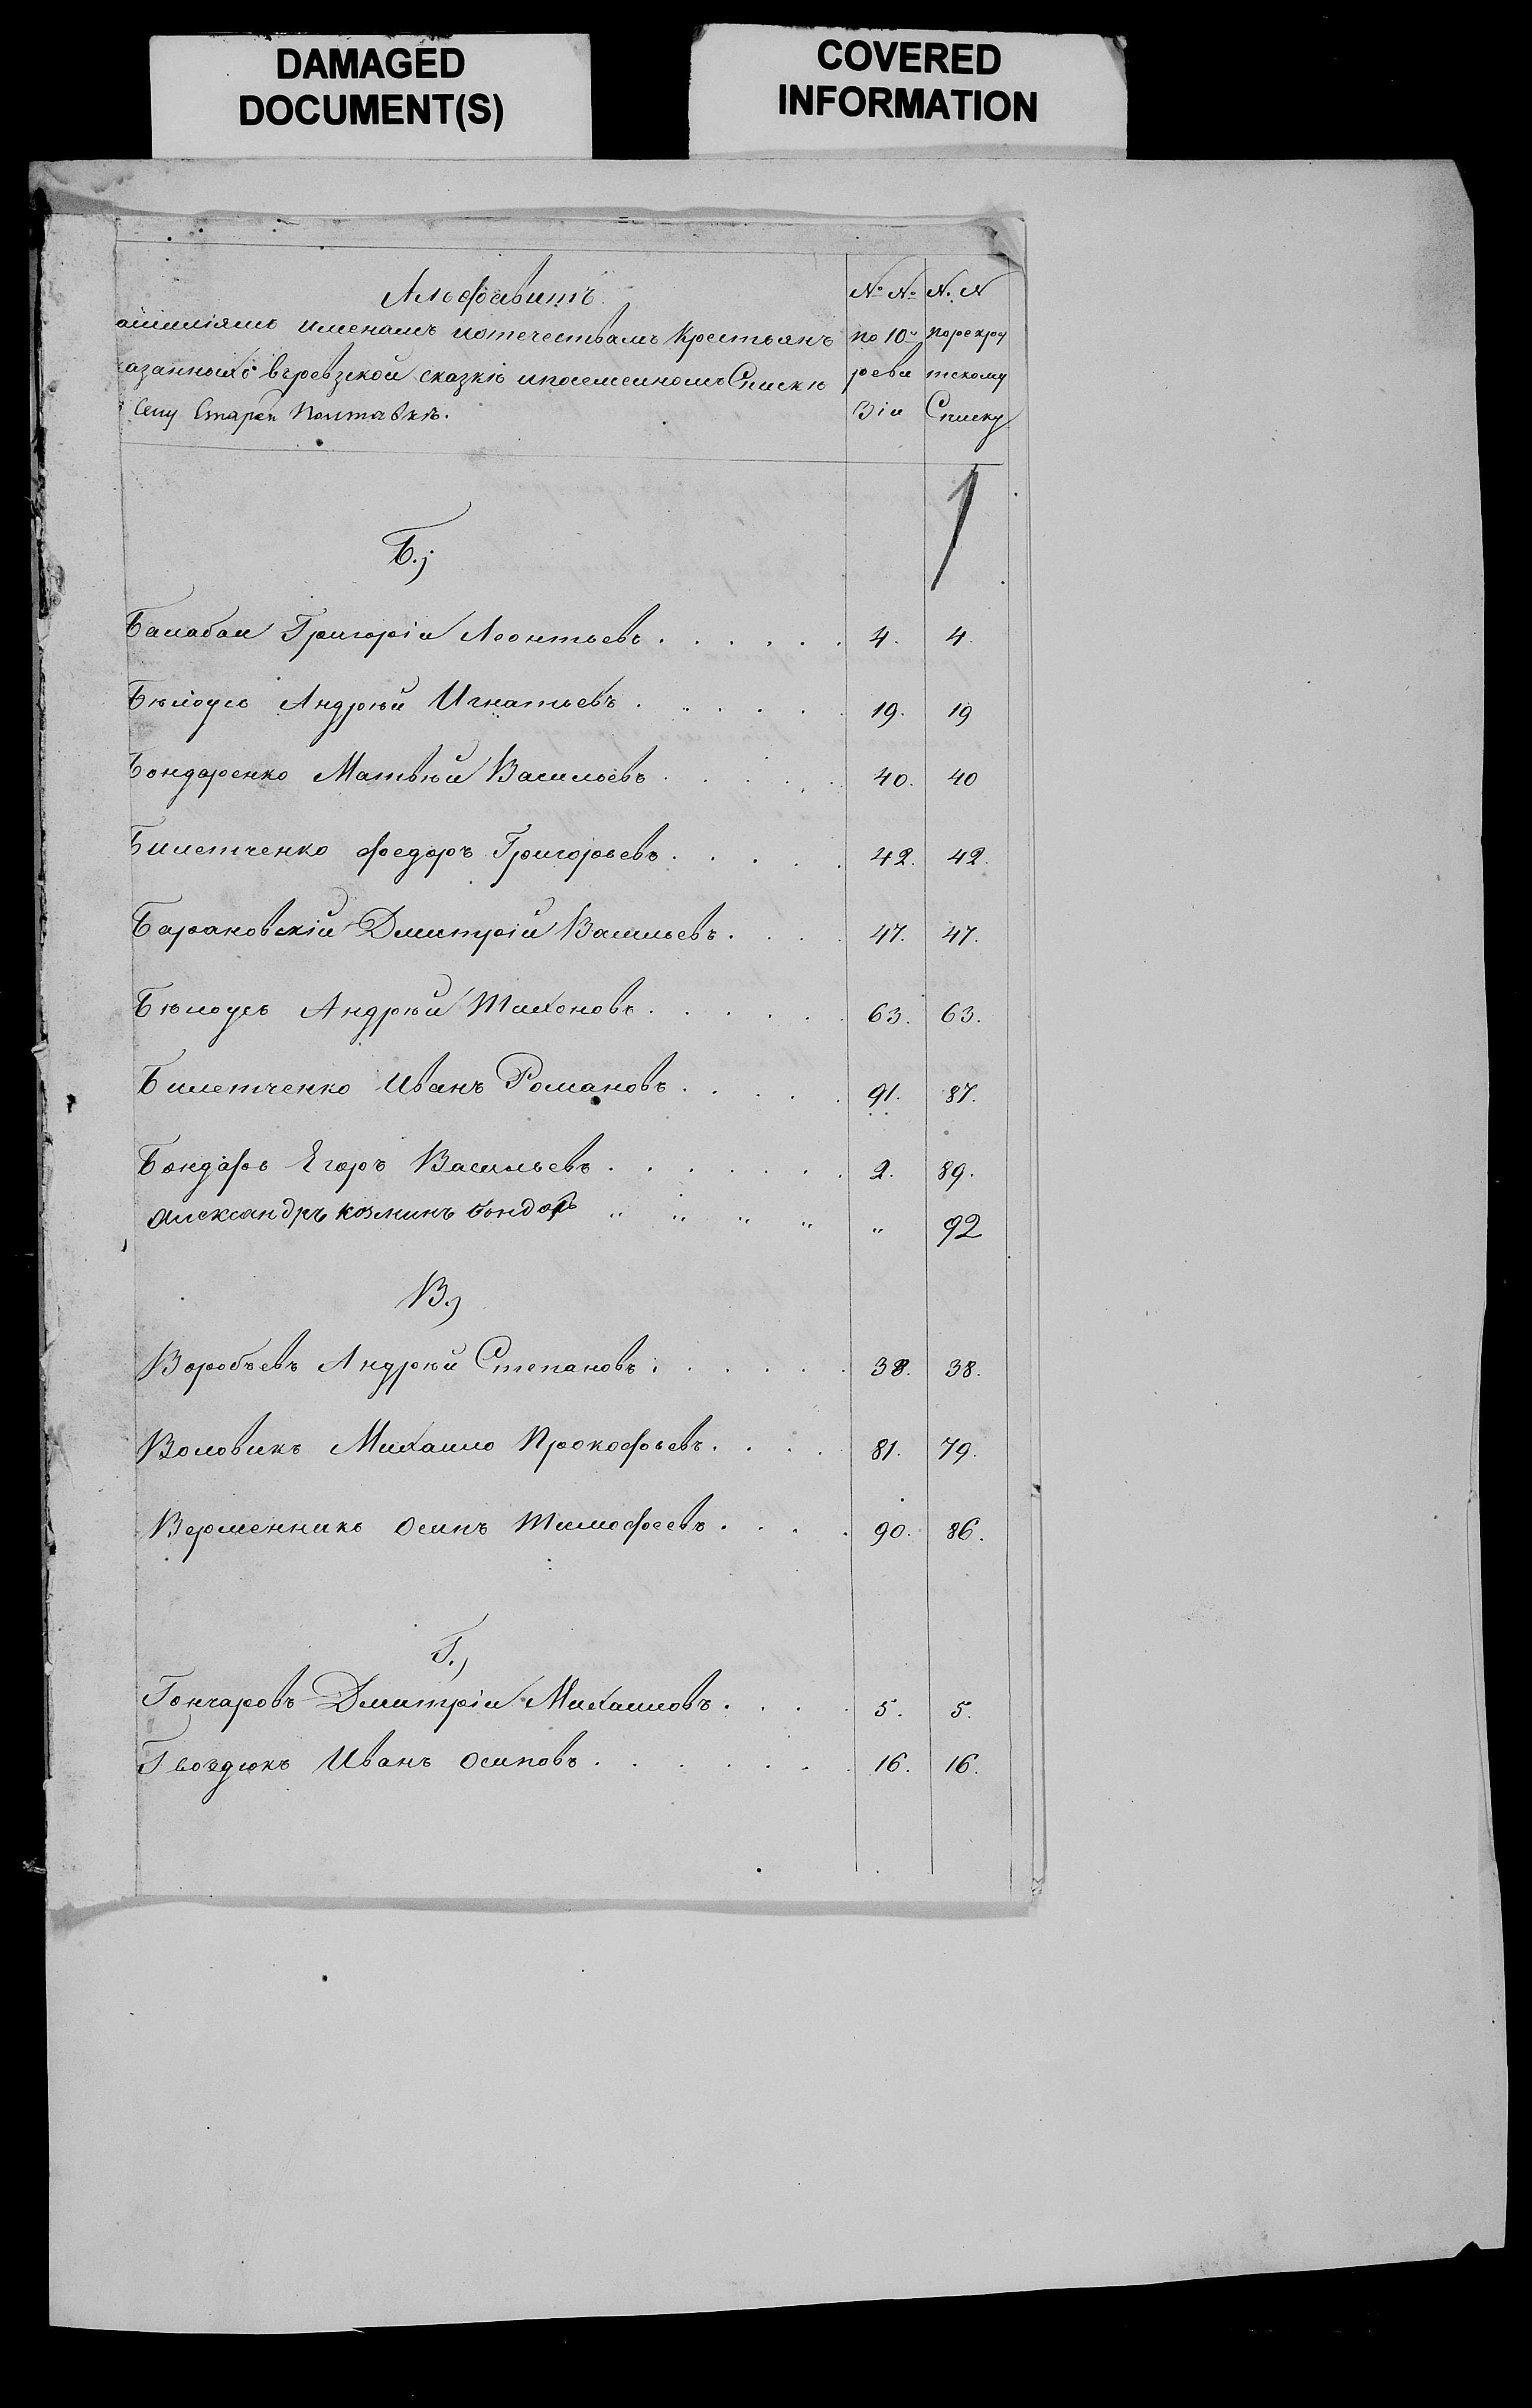 DAMAGED
DOCUMENT(S)
COVERED
INFORMATION
Альфавитъ
№ №
№ №
амиліямъ именамъ иотечествамъ Крестьянъ
по 10й
порекру
казанныхъ въревзской сказкѣ ипосемейномъ Спискѣ
реви
тскому
Селу Старой Полтавкѣ.
зіи
Списку
1
Б.)
Балабан Григорій Леонтьевъ 4. 4.
Бѣлоусъ Андрѣй Игнатьевъ 19. 19
Бондаренко Матвѣй Васильевъ 40. 40
Билетченко Федоръ Григорьевъ 42. 42.
Барановскій Дмитрій Васильевъ 47. 47.
Бѣлоусъ Андрѣй Тихоновъ 63. 63.
Билетченко Иванъ Романовъ 91. 87.
Бондарь Егоръ Васильевъ 2. 89.
Александръ Козминъ Бондарь „ 92
В.)
Воробьевъ Андрѣй Степановъ 38. 38.
Воловикъ Михаило Прокофьевъ 81. 79.
Верменникъ Осипъ Тимофеевъ 90. 86.
Г.)
Гончаровъ Дмитрій Михаиловъ 5. 5.
Гвоздюкъ Иванъ Осиповъ 16. 16.